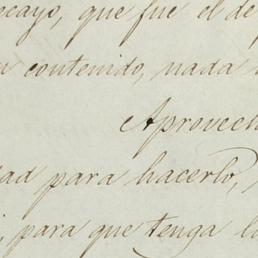 ecayo, que fue el de
n contenido, nada
Aprovech
dad para hacerlo,
, para que tenga l